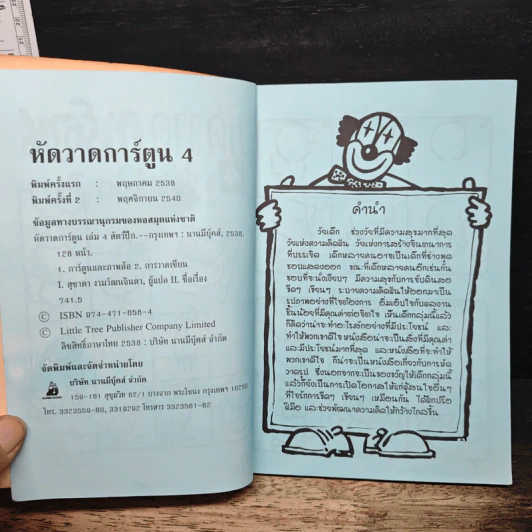 หัดวาดการ์ตูน 4
พิมพ์ครั้งแรก : พฤษภาคม 2538
พิมพ์ครั้งที่ 2 : พฤศจิกายน 2540
ข้อมูลทางบรรณานุกรมของหอสมุดแห่งชาติ
หัดวาดการ์ตูน เล่ม 4 สัตว์ปีก.--กรุงเทพฯ : นานมีบุ๊คส์, 2538.
128 หน้า.
1. การ์ตูนและภาพล้อ 2. การวาดเขียน
I. สุชาดา งามวัฒนจินดา, ผู้แปล II. ชื่อเรื่อง
741.5
© ISBN 974-471-658-4
© Little Tree Publisher Company Limited
ลิขสิทธิ์ภาษาไทย 2538 : บริษัท นานมีบุ๊คส์ จำกัด
จัดพิมพ์และจัดจำหน่ายโดย
บริษัท นานมีบุ๊คส์ จำกัด
159-161 สุขุมวิท 62/1 บางจาก พระโขนง กรุงเทพฯ 10250
โทร. 3323559-60, 3319292 โทรสาร 3323561-62
คำนำ
วัยเด็ก ช่วงวัยที่มีความสุขมากที่สุด
วัยแห่งความคิดฝัน วัยแห่งการสร้างจินตนาการ
ที่บรรเจิด เด็กหลายคนอาจเป็นเด็กที่ช่างพูด
ชอบแสดงออก ขณะที่เด็กหลายคนอีกเช่นกัน
ชอบที่จะนั่งเงียบๆ มีความสุขกับการจับดินสอ
ขีดๆ เขียนๆ ระบายความคิดฝันให้ออกมาเป็น
รูปภาพอย่างที่ใจต้องการ อิ่มเอิบใจกับผลงาน
ชิ้นน้อยที่มีคุณค่าต่อจิตใจ เห็นเด็กกลุ่มนี้แล้ว
ก็คิดว่าน่าจะทำอะไรสักอย่างที่มีประโยชน์ และ
ทำให้พวกเขาดีใจ หนังสือน่าจะเป็นสิ่งที่มีคุณค่า
และมีประโยชน์มากที่สุด และหนังสือที่จะทำให้
พวกเขาดีใจ ก็น่าจะเป็นหนังสือเกี่ยวกับการหัด
วาดรูป ซึ่งนอกจากจะเป็นของขวัญให้เด็กกลุ่มนี้
แล้วก็ยังเป็นการเปิดโอกาสให้แก่ผู้สนใจอื่นๆ
ที่ใจรักการขีดๆ เขียนๆ เหมือนกัน ได้ฝึกปรือ
ฝีมือ และช่วยพัฒนาความคิดให้กว้างไกลขึ้น